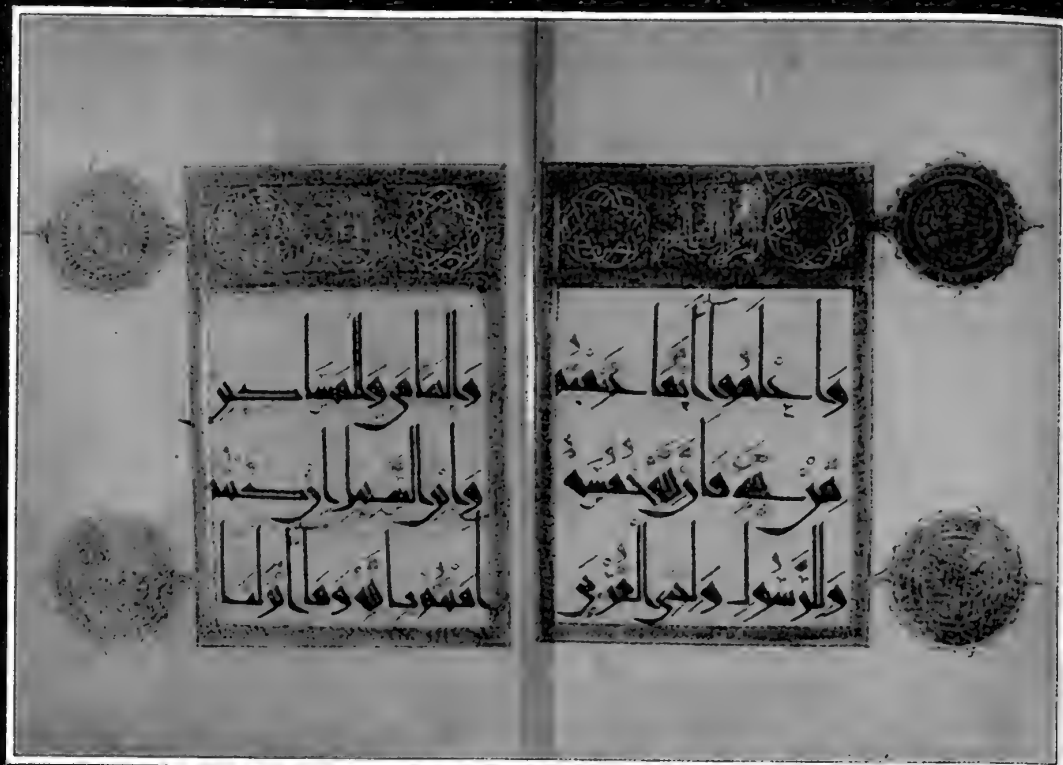 وَاعْلَمُوا أَنَّمَا غَنِمْتُمْ
مِّنْ شَيْءٍ فَأَنَّ لِلَّهِ خُمُسَهُ
وَلِلرَّسُولِ وَلِذِي الْقُرْبَى
وَالْيَتَامَى وَالْمَسَاكِينِ
وَابْنِ السَّبِيلِ إِنْ كُنْتُمْ
آمَنْتُمْ بِاللَّهِ وَمَا أَنْزَلْنَا